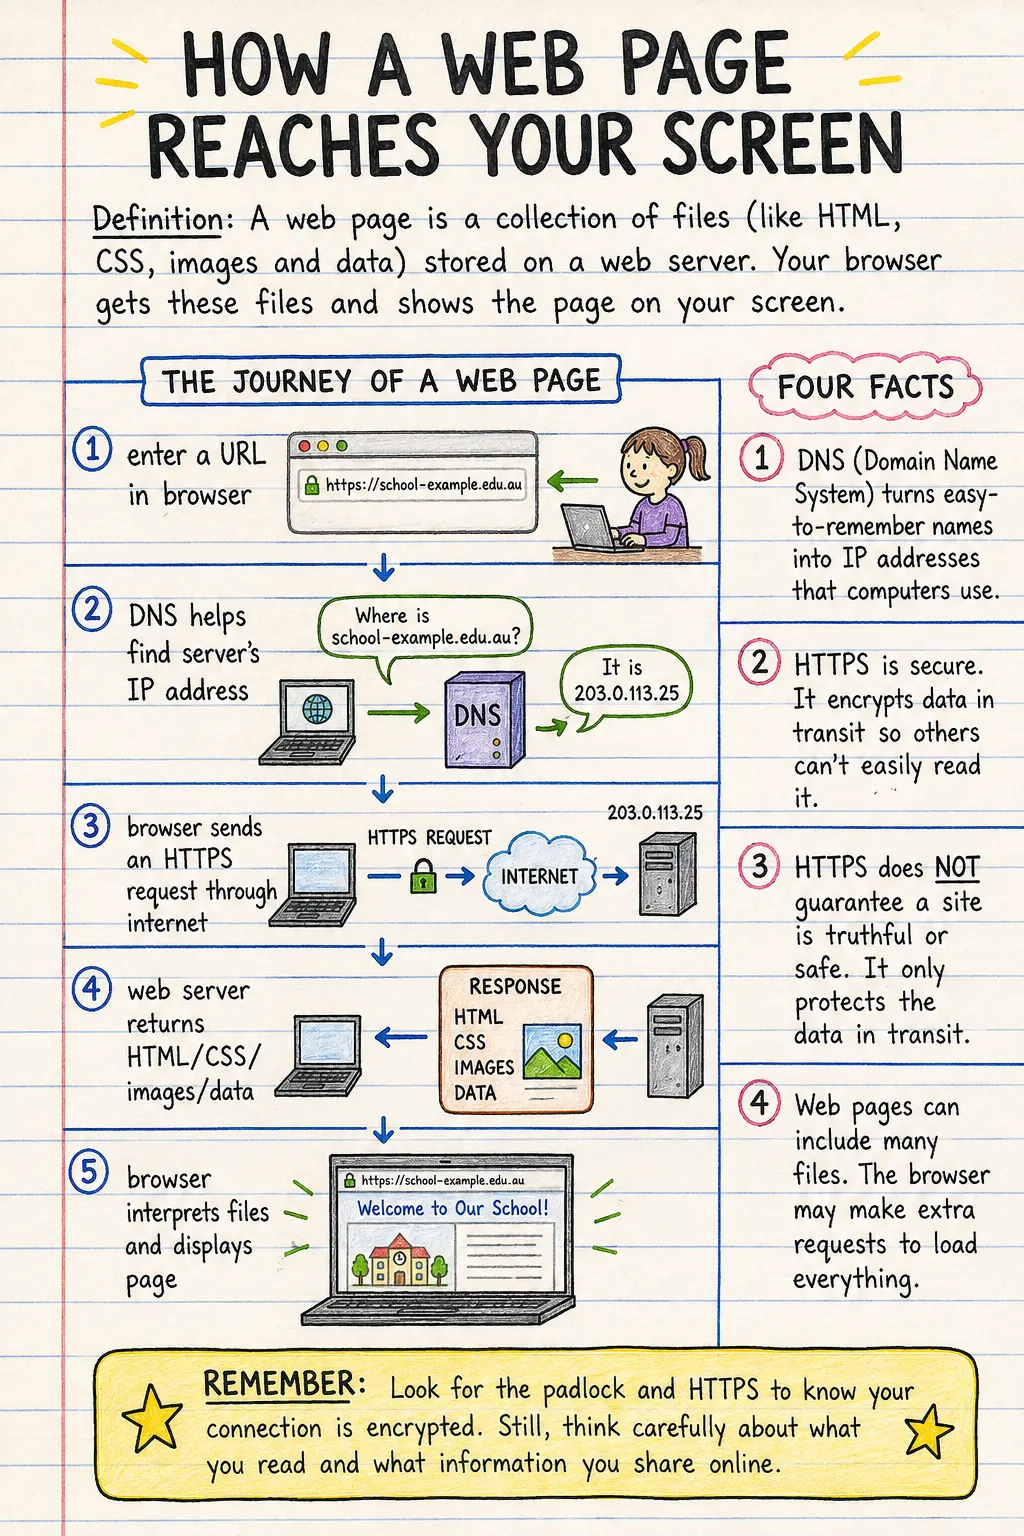 HOW A WEB PAGE
REACHES YOUR SCREEN
Definition: A web page is a collection of files (like HTML,
CSS, images and data) stored on a web server. Your browser
gets these files and shows the page on your screen.
THE JOURNEY OF A WEB PAGE
1
enter a URL
in browser
https://school-example.edu.au
2
DNS helps
find server's
IP address
Where is
school-example.edu.au?
DNS
It is
203.0.113.25
3
browser sends
an HTTPS
request through
internet
HTTPS REQUEST
INTERNET
203.0.113.25
4
web server
returns
HTML/CSS/
images/data
RESPONSE
HTML
CSS
IMAGES
DATA
5
browser
interprets files
and displays
page
https://school-example.edu.au
Welcome to Our School!
FOUR FACTS
1
DNS (Domain Name
System) turns easy-
to-remember names
into IP addresses
that computers use.
2
HTTPS is secure.
It encrypts data in
transit so others
can't easily read
it.
3
HTTPS does NOT
guarantee a site
is truthful or
safe. It only
protects the
data in transit.
4
Web pages can
include many
files. The browser
may make extra
requests to load
everything.
REMEMBER: Look for the padlock and HTTPS to know your
connection is encrypted. Still, think carefully about what
you read and what information you share online.